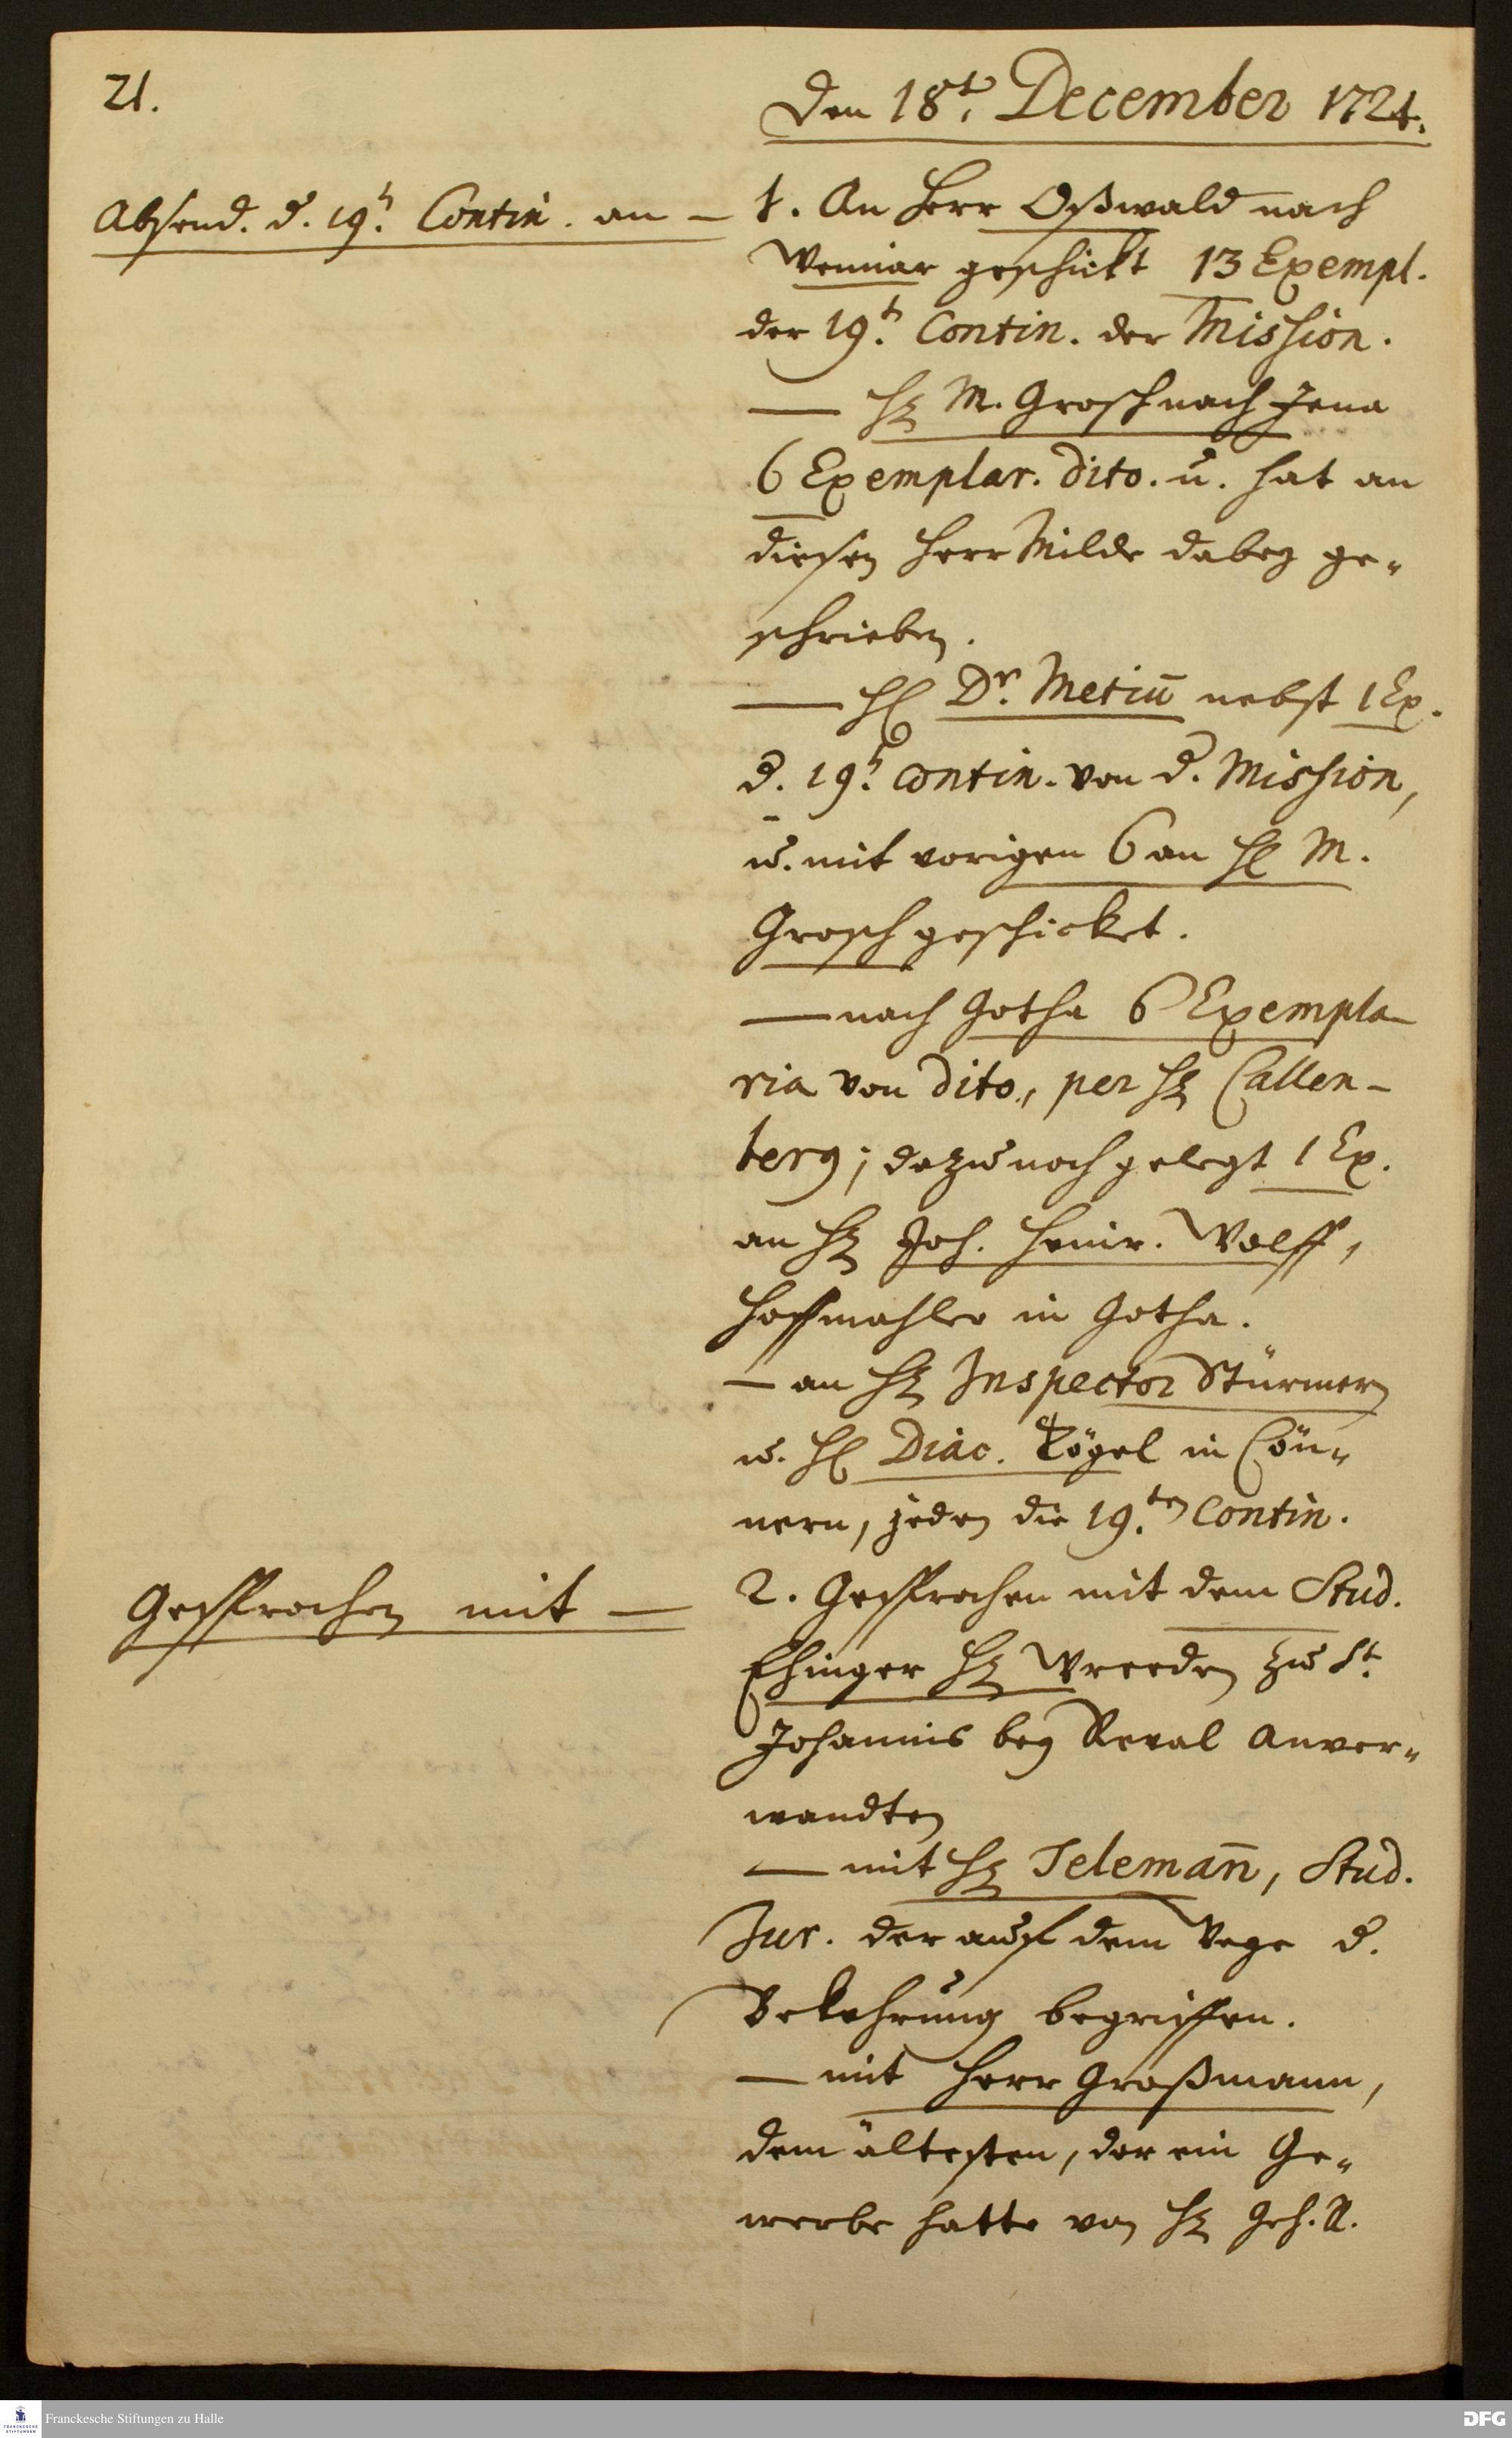 21.
Den 18t. December 1724.
Absend. d. 19t. Contin. an –
1. An Herr Oßwald nach
Weimar geschickt 13 Exempl.
der 19t. Contin. der Mission.
— H. M. Grosch nach Jena
6 Exemplar. dito. u. hat an
diesen Herr Milde dabey ge-
schrieben.
— H. Dr. Metiū nebst 1 Ex.
d. 19t. contin. von d. Mission,
u. mit vorigen 6 an H. M.
Grosch geschicket.
— nach Gotha 6 Exempla-
ria von dito, per H. Callen-
berg; dazu noch gelegt 1 Ex.
an H. Joh. Heinr. Wolff,
Hoffmahler in Gotha.
— an H. Inspector Stürmer
u. H. Diac. Kögel in Cön-
nern, jeden die 19.ten Contin.
Gesprochen mit —
2. Gesprochen mit dem Stud.
Ehinger H. Wreeden zu St.
Johannis bey Reval Anver-
wandten
— mit H. Telemañ, Stud.
Jur. der auf dem Wege d.
Bekehrung begriffen.
— mit Herr Großmann,
dem ältesten, der ein Ge-
werbe hatte von H. Geh. R.
Franckesche Stiftungen zu Halle
DFG